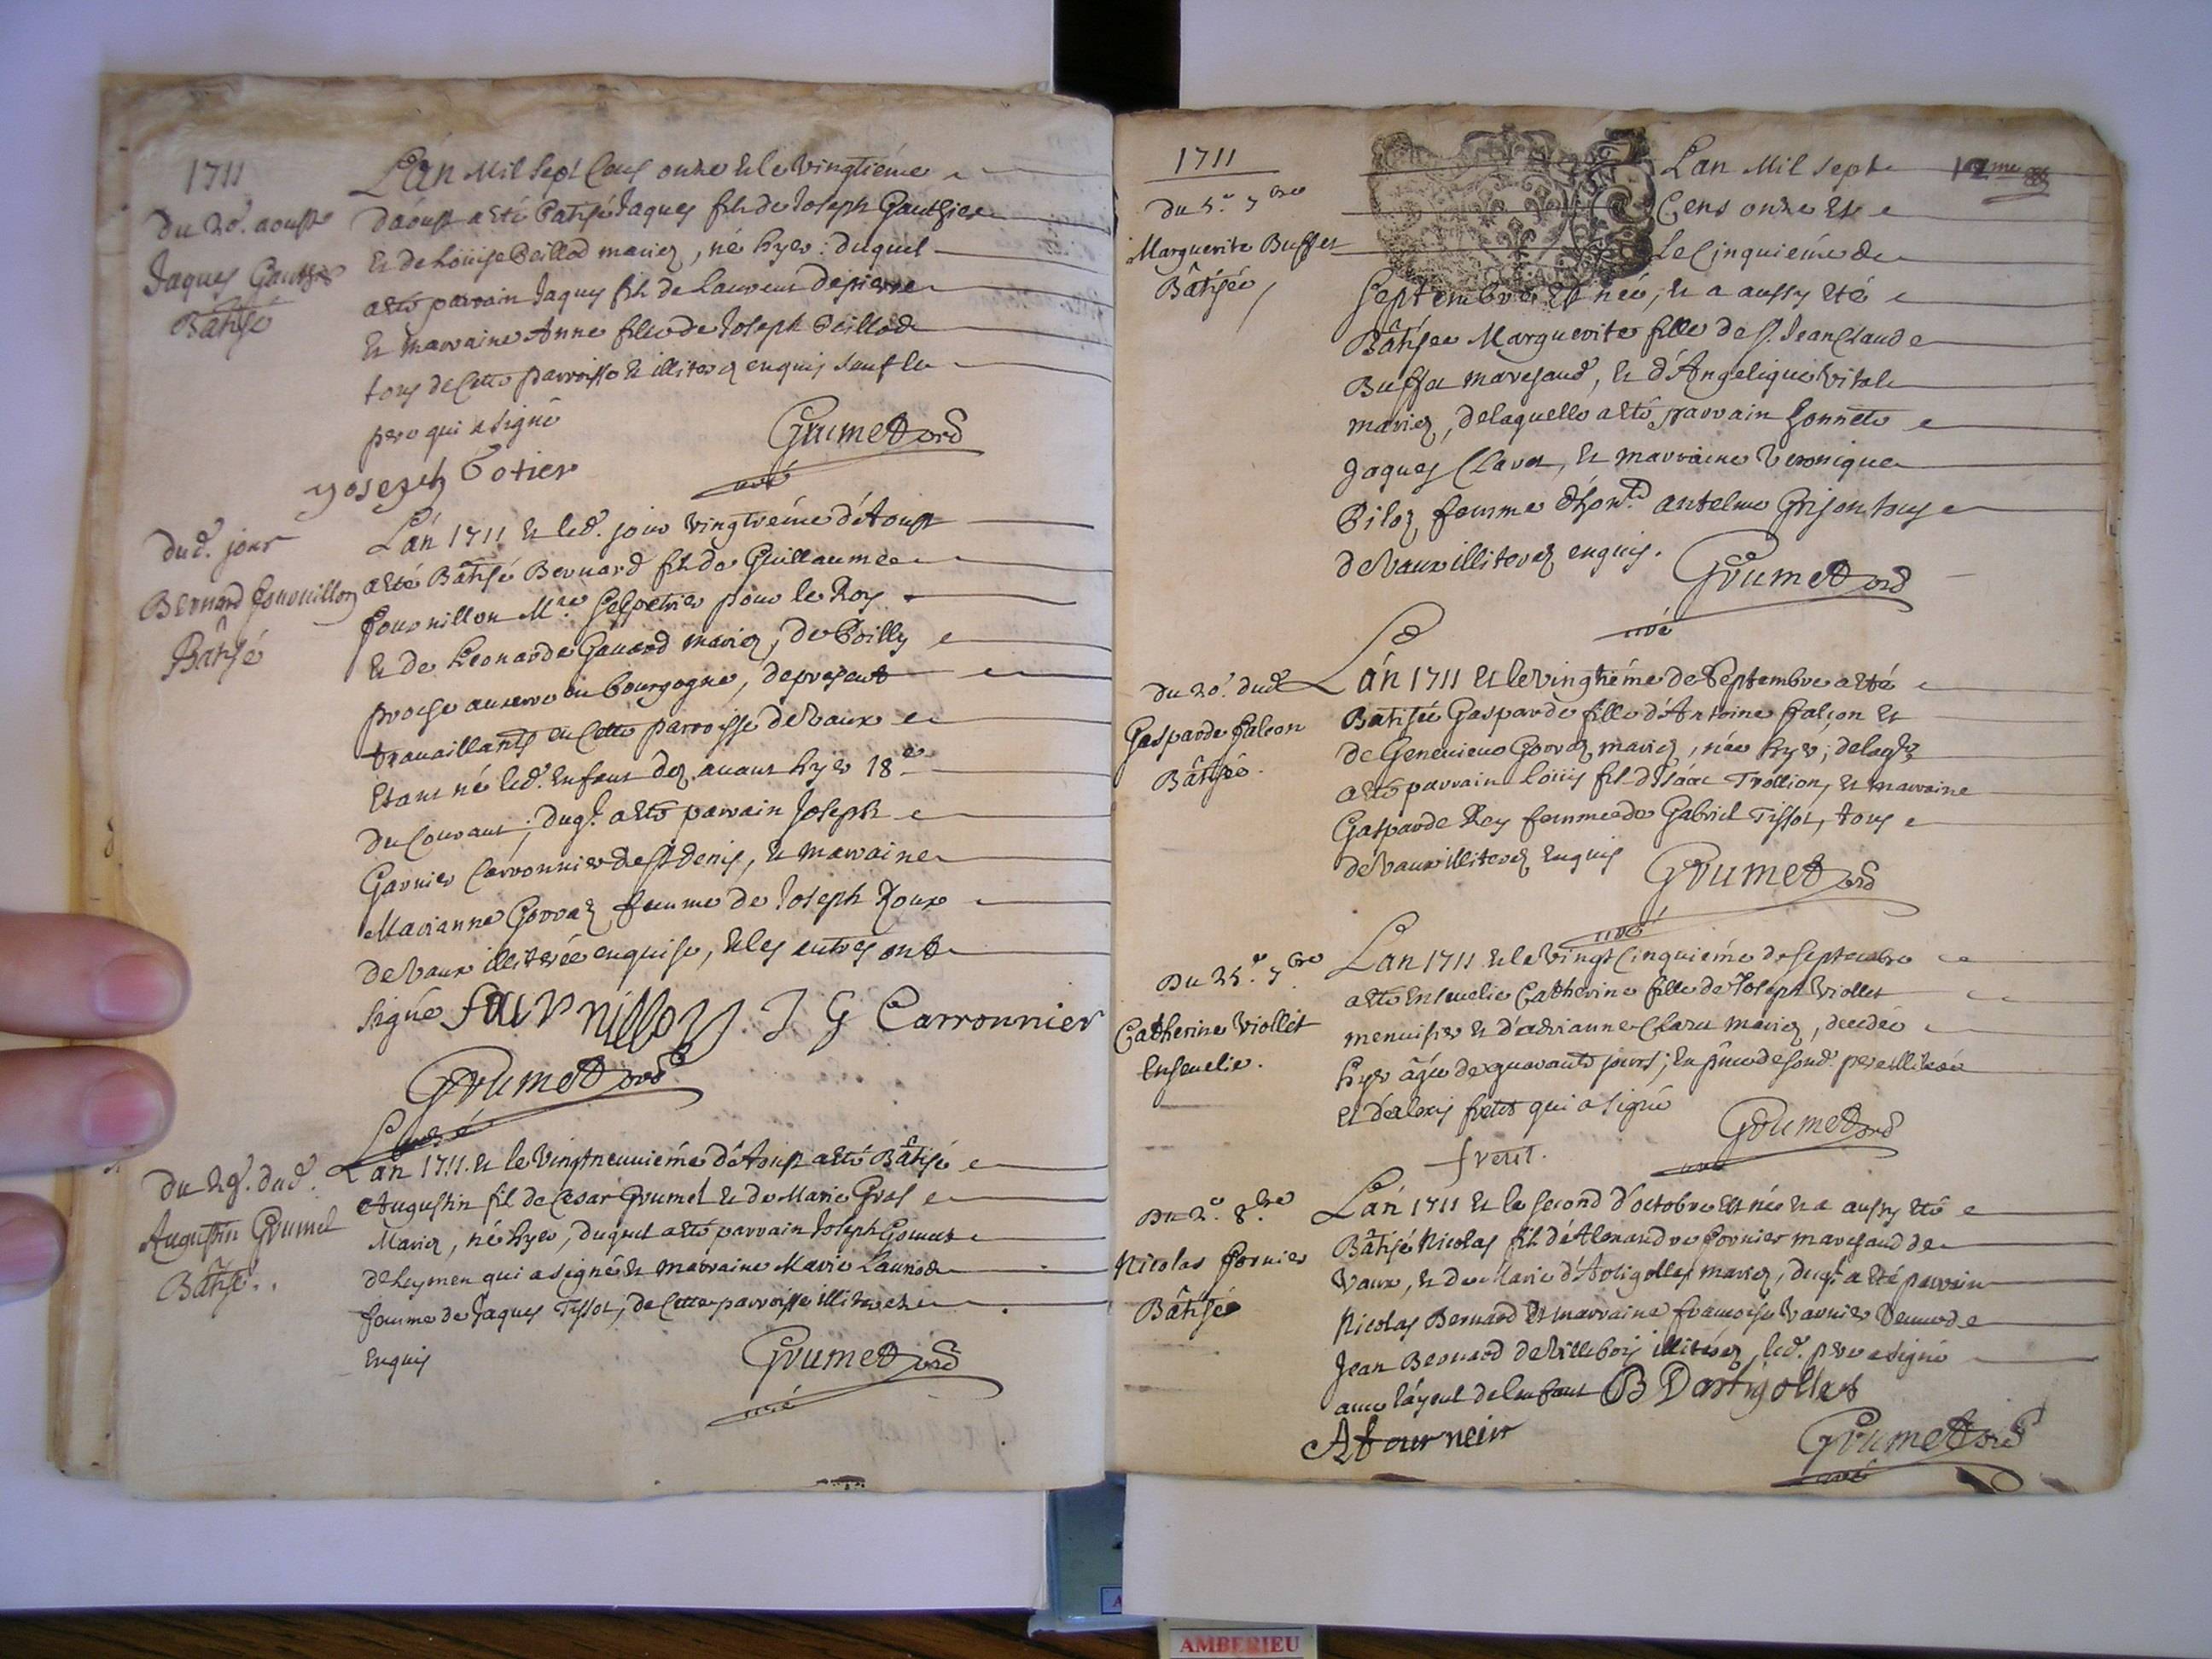 1711
Du 20.e aoust
Jaques Gauthier
Bâtisé
Lán Mil sept Cens onze et le vingtiéme
dáoust a eté Batisé Jaques fils de Joseph Gauthier
et de Loüise Beillod mariez, né hyer: duquel
a eté parrain Jaques fils de Laurent depierre
et marraine Anne fille de Joseph Beillod
tous de Cette parroisse et illiterez enquis sauf le
pere qui a signé
Grumet
curé
yosezh Gotier
Dud. jour
Bernard fournillon
Bâtisé
Lán 1711 et led. jour vingtiéme d'Aoust
a eté Bâtisé Bernard fils de Guillaume
fournillon M.re salpetrier pour le Roy
et de Leonarde Gauard mariez, de Poilly
proche auxerre en bourgogne, de present
travaillants en Cette parroisse de vaux
Etant né led. Enfant dez avant hyer 18.e
Du Courant; duq.l a eté parrain Joseph
Garnier Carronnier de St denis, et marraine
Marianne Gorraz femme de Joseph Roux
de vaux illiterée enquise, et les autres ont
signé fournilloy. J G Carronnier
Grumet
curé
Du 29. dud.
Augustin Grumel
Bâtisé.
Lan 1711 et le vingtneuviéme d'Aoust a eté Bâtisé
Augustin fils de Cesar Grumel et de Marie Gros
Mariez, né hyer, duquel a eté parrain Joseph
de Leymen qui a signé et marraine Marie
femme de Jaques Tissot, de Cette parroisse illiterez
Enquis
Grumet
curé
1711
Du 5.e 7bre
Marguerite Buffet
Bâtisée
Lan Mil sept
Cens onze et
Le Cinquiéme de
Septembre est née, et a aussy eté
Bâtisée Marguerite fille de S.r Jean Claude
Buffet mareschaud, et d'Angelique Vital
mariez, delaquelle a eté parrain honnete
Jaques Claret, et marraine Veronique
Piloz femme d'hon.te antelme Grison tous
de vaux illiterez enquis.
Grumet
curé
Du 20.e dud.
Gasparde falcon
Bâtisée.
Lán 1711 et le vingtiéme de Septembre a eté
Batisée Gasparde fille d'Antoine falcon et
de Genevieve Gorraz mariez, née hyer; delaq.le
a eté parrain Loüis fils d'Isáac Trollion, et marraine
Gasparde Rey femme de Gabriel Tissot, tous
de vaux illiterez Enquis
Grumet
curé
Du 25.e 7bre
Catherine Viollet
Ensevelie.
Lán 1711 et le vingt Cinquiéme de Septembre
a eté Ensevelie Catherine fille de Joseph Viollet
menuisier et d'adrianne Claret mariez, decedée
hyer âgée de quarante jours; En pñce de sond. pere illiteré
et d'alexis fretet qui a signé
Grumet
curé
fretet.
Du 2.e 8bre
Nicolas fornier
Bâtisé
Lan 1711 et le second d'octobre est né et a aussy eté
Bâtisé Nicolas fils d'Alexandre fornier mareschaud de
vaux, et de Marie d'Artigolles mariez, duq.l a eté parrain
Nicolas Bernard et marraine francoise Varnier veuve de
Jean Bernard de Villebois illiterez, led. pere a signé
avec láyeul de lenfant B Dartigolles
A fourneir
Grumet
curé
AMBERIEU